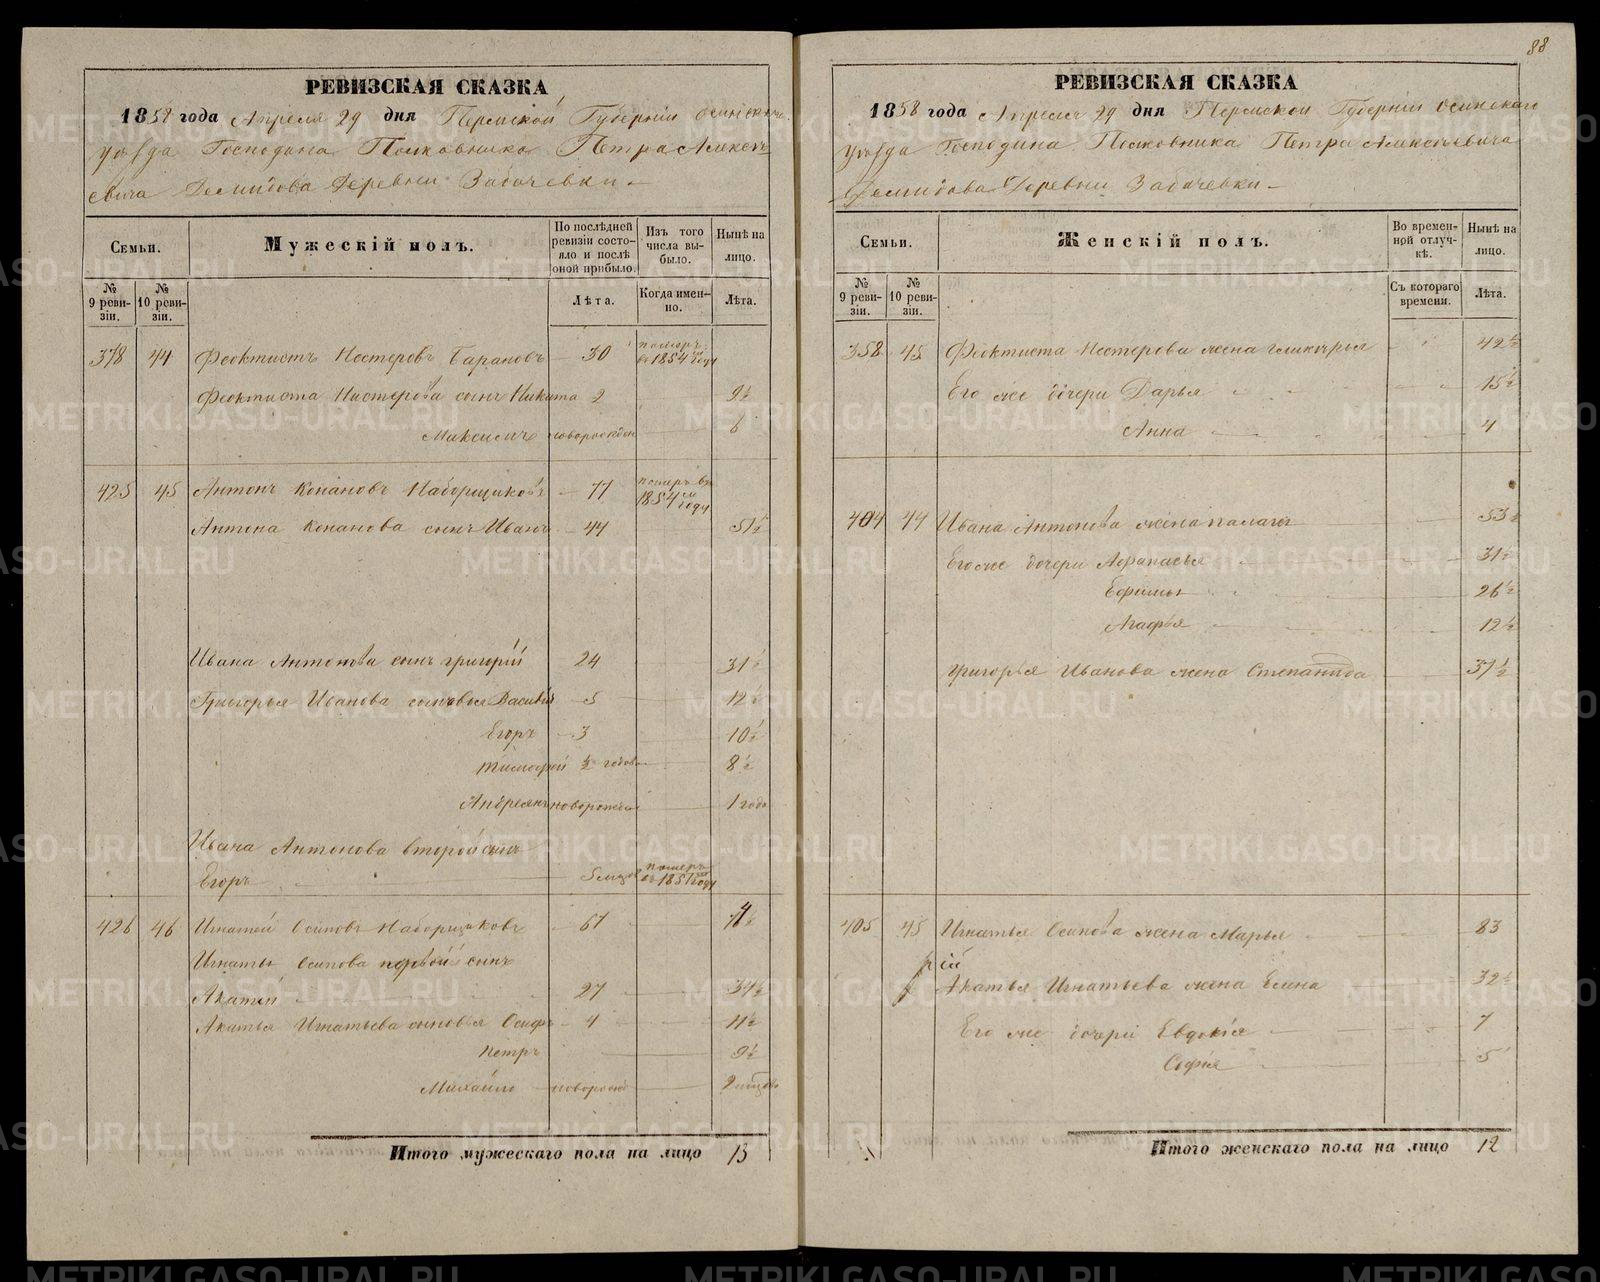 РЕВИЗСКАЯ СКАЗКА
1858 года Апреля 29 дня Пермской Губернии Осинскаго
уѣзда Господина Полковника Петра Алексѣ-
евича Демидова деревни
Семьи.
Мужескій полъ.
По послѣдней ревизіи состояло и послѣ оной прибыло.
Изъ того числа выбыло.
Нынѣ на лицо.
№ 9 ревизіи.
№ 10 ревизіи.
Лѣта.
Когда именно.
Лѣта.
378 44 Феоктистъ Нестеровъ Барановъ 30 померъ въ 1854 году
Феоктиста Нестерова сынъ Никита 2 9½
Максимъ новорожден 6
425 45 Антонъ Конановъ Наборщиковъ 77 померъ въ 1854 году
Антона Конанова сынъ Иванъ 44 51½
Ивана Антонова сынъ Григорій 24 31½
Григорья Иванова сыновья Василій 5 12½
Егоръ 3 10½
Тимофей ½ годова 8½
Андреянъ новорожден 1 годъ
Ивана Антонова второй сынъ
Егоръ 5 мѣсяц померъ въ 1851 году
426 46 Игнатій Осиповъ Наборщиковъ 67
Игнатья Осипова первой сынъ
Акатій 27 34½
Акатья Игнатьева сыновья Осипъ 4 11½
Петръ 9½
Михайло новорожд
Итого мужескаго пола на лицо 13
88
РЕВИЗСКАЯ СКАЗКА
1858 года Апреля 29 дня Пермской Губерніи Осинскаго
уѣзда Господина Полковника Петра Алексѣевича
Демидова Деревни
Семьи.
Женскій полъ.
Во временной отлучкѣ.
Нынѣ на лицо.
№ 9 ревизіи.
№ 10 ревизіи.
Съ котораго времени.
Лѣта.
358 45 Феоктиста Нестерова жена 42½
Его же дочери Дарья 15½
Анна 4
404 44 Ивана Антонова жена 53½
Его же дочери Афанасья 31½
Ефимья 26½
Агафья 12½
Григорья Иванова жена Степанида 37½
405 45 Игнатья Осипова жена Марья 83
Акатья Игнатьева жена Елена 32½
Его же дочери Евдокія 7
Софія 5
Итого женскаго пола на лицо 12
METRIKI.GASO-URAL.RU